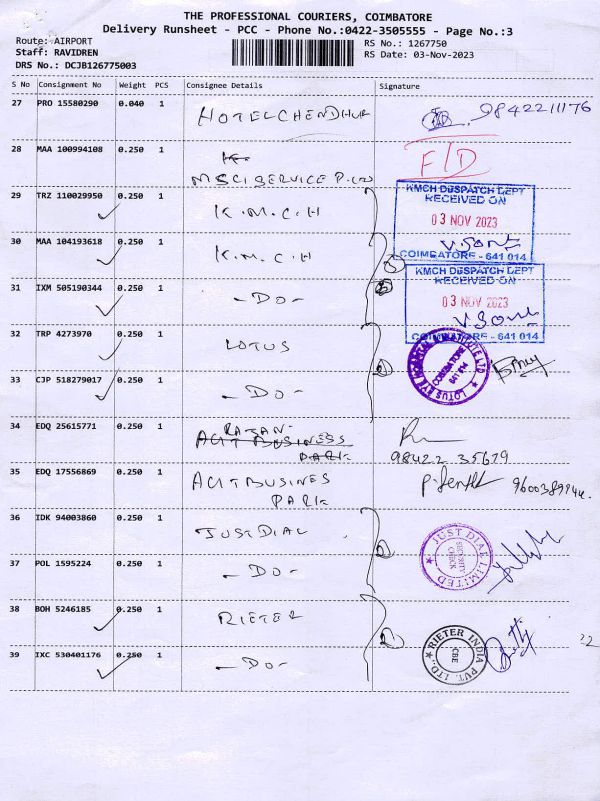 THE PROFESSIONAL COURIERS, COIMBATORE
Delivery Runsheet - PCC - Phone No.:0422-3505555 - Page No.:3
Route: AIRPORT
Staff: RAVIDREN
DRS No.: DCJB126775003
RS No.: 1267750
RS Date: 03-Nov-2023
S No Consignment No Weight PCS Consignee Details Signature
27 PRO 15580290 0.040 1 HOTELCHENDHUR 9842211176
28 MAA 100994108 0.250 1 MSCI SERVICE P. LTD F/D
29 TRZ 110029950 0.250 1 K.M.C.H
KMCH DESPATCH DEPT
RECEIVED ON
03 NOV 2023
COIMBATORE - 641 014
30 MAA 104193618 0.250 1 K.M.C.H
31 IXM 505190344 0.250 1 -DO-
KMCH DESPATCH DEPT
RECEIVED ON
03 NOV 2023
COIMBATORE - 641 014
32 TRP 4273970 0.250 1 LOTUS
33 CJP 518279017 0.250 1 -DO-
LOTUS EYE HOSPITAL LTD
COIMBATORE
34 EDQ 25615771 0.250 1 RAJAN
ACIT BUSINESS
PARK
98422 35679
35 EDQ 17556869 0.250 1 ACIT BUSINES
PARK
36 IDK 94003860 0.250 1 JUSTDIAL
JUST DIAL LIMITED
SECURITY
CHECK
37 POL 1595224 0.250 1 -DO-
38 BOH 5246185 0.250 1 RIETER
39 IXC 530401176 0.250 1 -DO-
RIETER INDIA PVT. LTD.
CBE